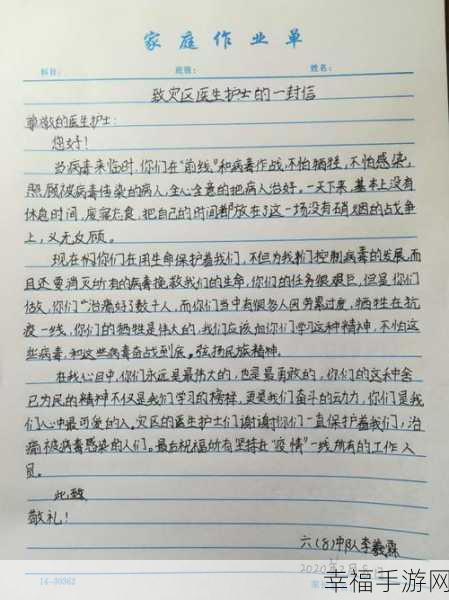 家庭作业单
科目：　班级：　姓名：
致灾区医生护士的一封信
尊敬的医生护士：
您好！
当病毒来临时，你们在“前线”和病毒作战，不怕牺牲，不怕感染，
照顾被病毒传染的病人，全心全意的把病人治好。一天下来，基本上没有
休息时间，废寝忘食，把自己的时间都放在了这一场没有硝烟的战争
上，义无反顾。
现在你们在用生命保护着我们，不但为我们控制病毒的发展，而
且还要消灭所有的病毒挽救我们的生命，你们的任务很艰巨，但是你们
做，你们治痛好了数千人，而你们当中有很多人因劳累过度，牺牲在抗
疫一线，你们的牺牲是伟大的，我们应该向你们学习这种精神，不怕这
些病毒，和这些病毒奋战到底。弦扬民族精神。
在我心目中，你们永远是最伟大的，也是最勇敢的，你们的这种舍
己为民的精神不仅是我们学习的榜样，更是我们奋斗的动力，你们是我
们心中最可爱的人。灾区的医生护士们谢谢你们一直保护着我们，治
痛被病毒感染的人们。最后祝福所有坚持在“疫情”一线所有的工作人
员。
此致
敬礼！
六(8)中队李羲霖
2020年2月
14-30362
幸福手游网